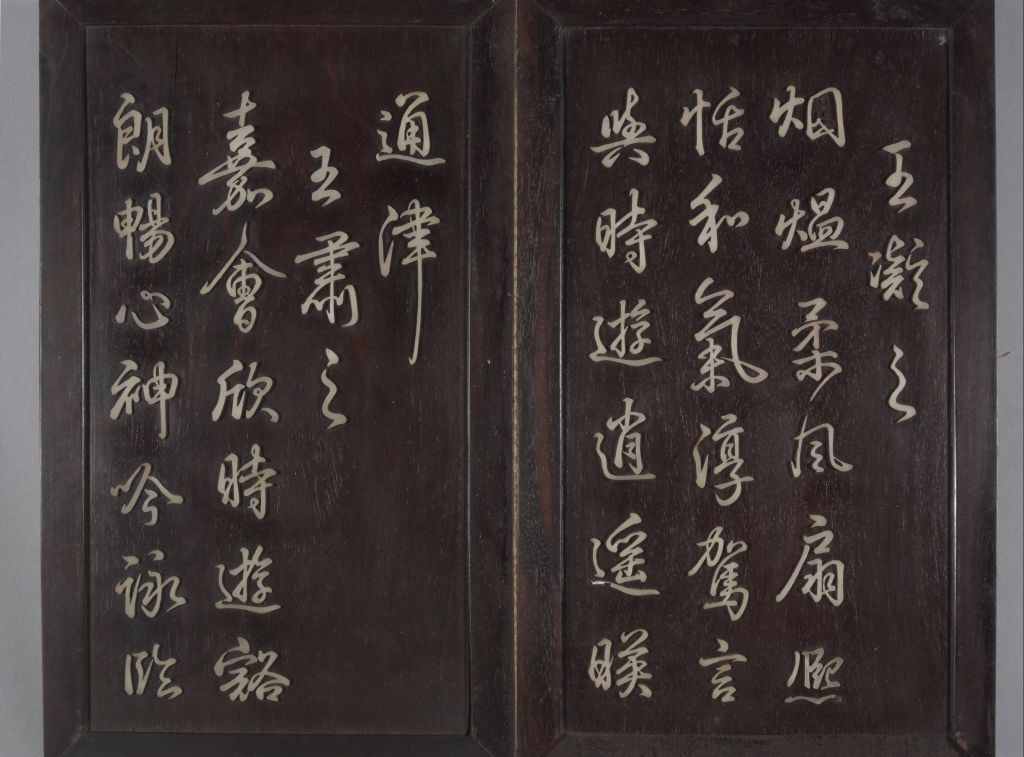 王凝之
烟煴柔风扇熙
恬和氣淳駕言
與時遊逍遥暎
通津
王肅之
嘉會欣時遊豁
朗暢心神吟詠曲